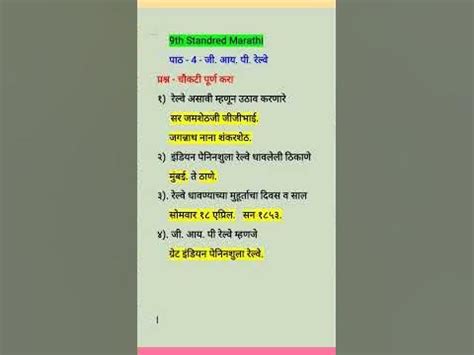 9th Standred Marathi
पाठ - 4 - जी. आय. पी. रेल्वे
प्रश्न - चौकटी पूर्ण करा
१) रेल्वे असावी म्हणून उठाव करणारे
सर जमशेठजी जीजीभाई.
जगन्नाथ नाना शंकरशेठ.
२) इंडियन पेनिनशुला रेल्वे धावलेली ठिकाणे
मुंबई. ते ठाणे.
३). रेल्वे धावण्याच्या मुहूर्ताचा दिवस व साल
सोमवार १८ एप्रिल. सन १८५३.
४). जी. आय. पी रेल्वे म्हणजे
ग्रेट इंडियन पेनिनशुला रेल्वे.